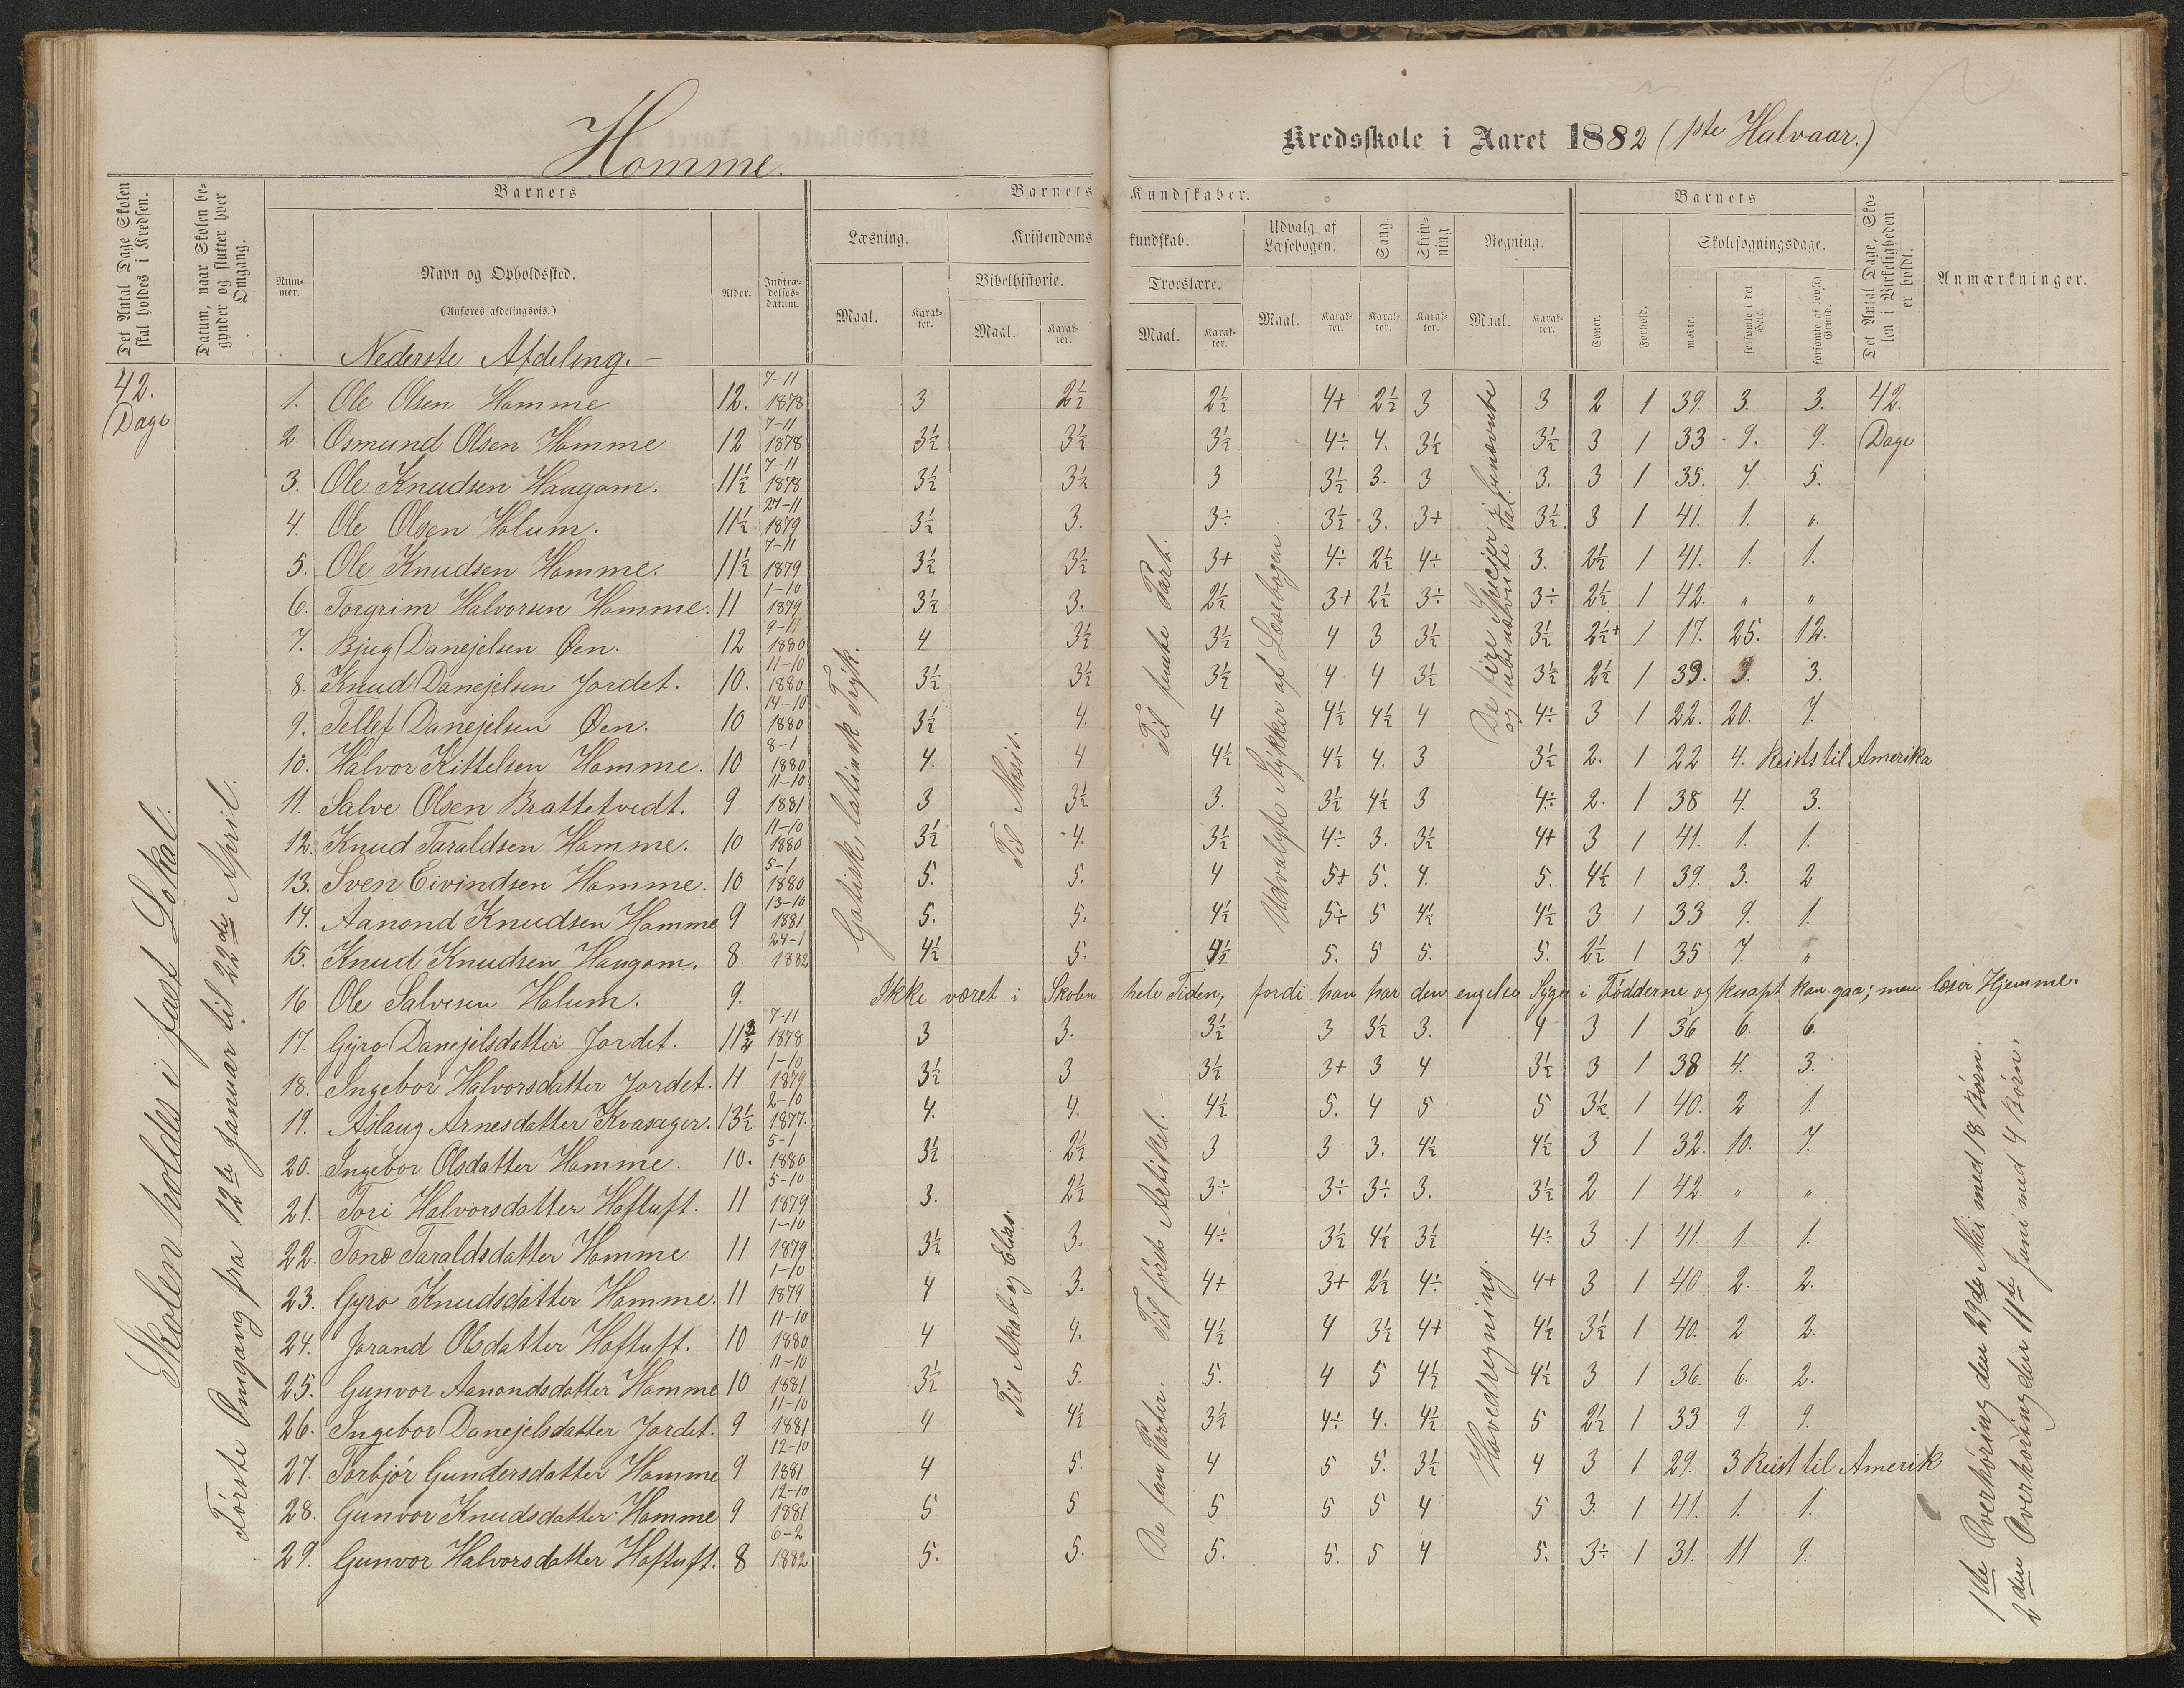 Homme.
Kredsskole i Aaret 1882 (1ste Halvaar.)
Det Antal Dage Skolen skal holdes i Kredsen.
Datum, naar Skolen begynder og slutter hver Omgang.
Barnets
Barnets Kundskaber.
Barnets
Det Antal Dage, Skolen i Virkeligheden er holdt.
Anmærkninger.
Nummer.
Navn og Opholdssted.
(Anføres afdelingsvis.)
Alder.
Indtrædelsesdatum.
Læsning.
Kristendomskundskab.
Udvalg af Læsebogen.
Sang.
Skrivning
Regning.
Evner.
Forhold.
Skolesøgningsdage.
Bibelhistorie.
Troeslære.
mødte.
forsømte i det Hele.
forsømte af lovlig Grund.
Maal. Karakter. Maal. Karakter. Maal. Karakter. Maal. Karakter. Karakter. Karakter. Maal. Karakter.
Nederste Afdeling.
42. Dage
1. Ole Olsen Homme 12. 7-11 1878 3 2½ 2½ 4+ 2½ 3 3 2 1 39. 3. 3. 42. Dage
2. Osmund Olsen Homme 12 7-11 1878 3½ 3½ 3½ 4÷ 4. 3½ 3½ 3 1 33 9. 9.
3. Ole Knudsen Haugom. 11½ 7-11 1878 3½ 3½ 3 3½ 3. 3 3. 3 1 35. 7. 5.
4. Ole Olsen Holum. 11½ 27-11 1879 3½ 3. 3÷ 3½ 3. 3+ 3½. 3 1 41. 1. "
5. Ole Knudsen Homme. 11½ 7-11 1879 3½ 3½ 3+ 4÷ 2½ 4÷ 3. 2½ 1 41. 1. 1.
6. Torgrim Halvorsen Homme. 11 1-10 1879 3½ 3. 2½ 3+ 2½ 3÷ 3÷ 2½ 1 42. " "
7. Bjug Danejelsen Øen. 12 1880 4 3½ 3½ 4 3 3½ 3½ 2½+ 1 17. 25. 12.
8. Knud Danejelsen Jordet. 10. 11-10 1880 3½ 3½ 3½ 4 4 3½ 3½ 2½ 1 39. 3. 3.
9. Tellef Danejelsen Øen. 10 14-10 1880 3½ 4. 4 4½ 4½ 4 4÷ 3 1 22. 20. 7.
10. Halvor Kittelsen Homme. 10 8-1 1880 4. 4 4½ 4½ 4. 3 3½ 2. 1 22 4. Reist til Amerika
11. Salve Olsen Brattetvedt. 9 11-10 1881 3 3½ 3. 3½ 4½ 3 4÷ 2. 1 38 4. 3.
12. Knud Taraldsen Homme. 10 11-10 1880 3½ 4. 3½ 4÷ 3. 3½ 4+ 3 1 41. 1. 1.
13. Sven Eivindsen Homme. 10 5-1 1880 5. 5. 4 5+ 5. 4. 5. 4½ 1 39. 3. 2
14. Aanond Knudsen Homme 9 13-10 1881 5. 5. 4½ 5÷ 5 4½ 4½ 3 1 33 9. 1.
15. Knud Knudsen Haugom. 8. 24-1 1882 4½ 5. 4½ 5. 5 5. 5. 2½ 1 35 7 "
16 Ole Salvesen Holum. 9. Ikke været i Skolen hele Tiden, fordi han har den engelse Syge i Fødderne og knapt kan gaa; men læser Hjemme.
17. Gyro Danejelsdatter Jordet. 11¾ 7-11 1878 3 3. 3½ 3 3½ 3. 4 3 1 36 6. 6.
18. Ingebor Halvorsdatter Jordet. 11 1-10 1879 3½ 3 3½ 3+ 3 4 3½ 3 1 38 4. 3.
19. Aslaug Arnesdatter Kvasager. 13½ 2-10 1877. 4. 4. 4½ 5. 4 5 5 3½ 1 40. 2 1.
20. Ingebor Olsdatter Homme. 10. 5-1 1880 3½ 2½ 3 3 3. 4½ 4½ 3 1 32. 10. 7.
21. Tori Halvorsdatter Hoftuft. 11 5-10 1879 3. 2½ 3÷ 3÷ 3÷ 3. 3½ 2 1 42. " "
22. Tone Taraldsdatter Homme 11 1-10 1879 3½ 3. 4÷ 3½ 4½ 3½ 4÷ 3 1 41. 1. 1.
23. Gyro Knudsdatter Homme. 11 1-10 1879 4 3. 4+ 3+ 2½ 4÷ 4+ 3 1 40 2. 2.
24. Jorand Olsdatter Hoftuft. 10 11-10 1880 4 4. 4½ 4 3½ 4+ 4½ 3½ 1 40. 2 2.
25. Gunvor Aanondsdatter Homme 10 11-10 1881 3½ 5. 5. 4 5 4½ 4½ 3 1 36. 6. 2.
26. Ingebor Danejelsdatter Jordet. 9 11-10 1881 4 4½ 3½ 4÷ 4. 4½ 5 2½ 1 33 9. 9.
27. Torbjør Gundersdatter Homme 9 12-10 1881 4 5. 4 5 5. 3½ 4 3 1 29. 3 Reist til Amerik
28. Gunvor Knudsdatter Homme 9 12-10 1881 5 5 5 5 5 4 5 3. 1 41. 1. 1.
29. Gunvor Halvorsdatter Hoftuft. 8 6-2 1882 5. 5. 5. 5. 5 4 5. 3÷ 1 31. 11 9.
Skolen holdes i fast Lokal.
Første Omgang fra 12te Januar til 22de April.
Gotisk, latinsk Tryk.
Til Mosis.
Til Akab og Elias.
Til femte Part.
Til første Artikel.
De fem Parter.
Udvalgte Stykker af Læsebogen
De fire Specier i benævnte
og ubenævnte Tal.
Hovedregning.
1ste Overhøring den 29de Mai med 18 Børn.
2den Overhøring den 11te Juni med 4 Børn.